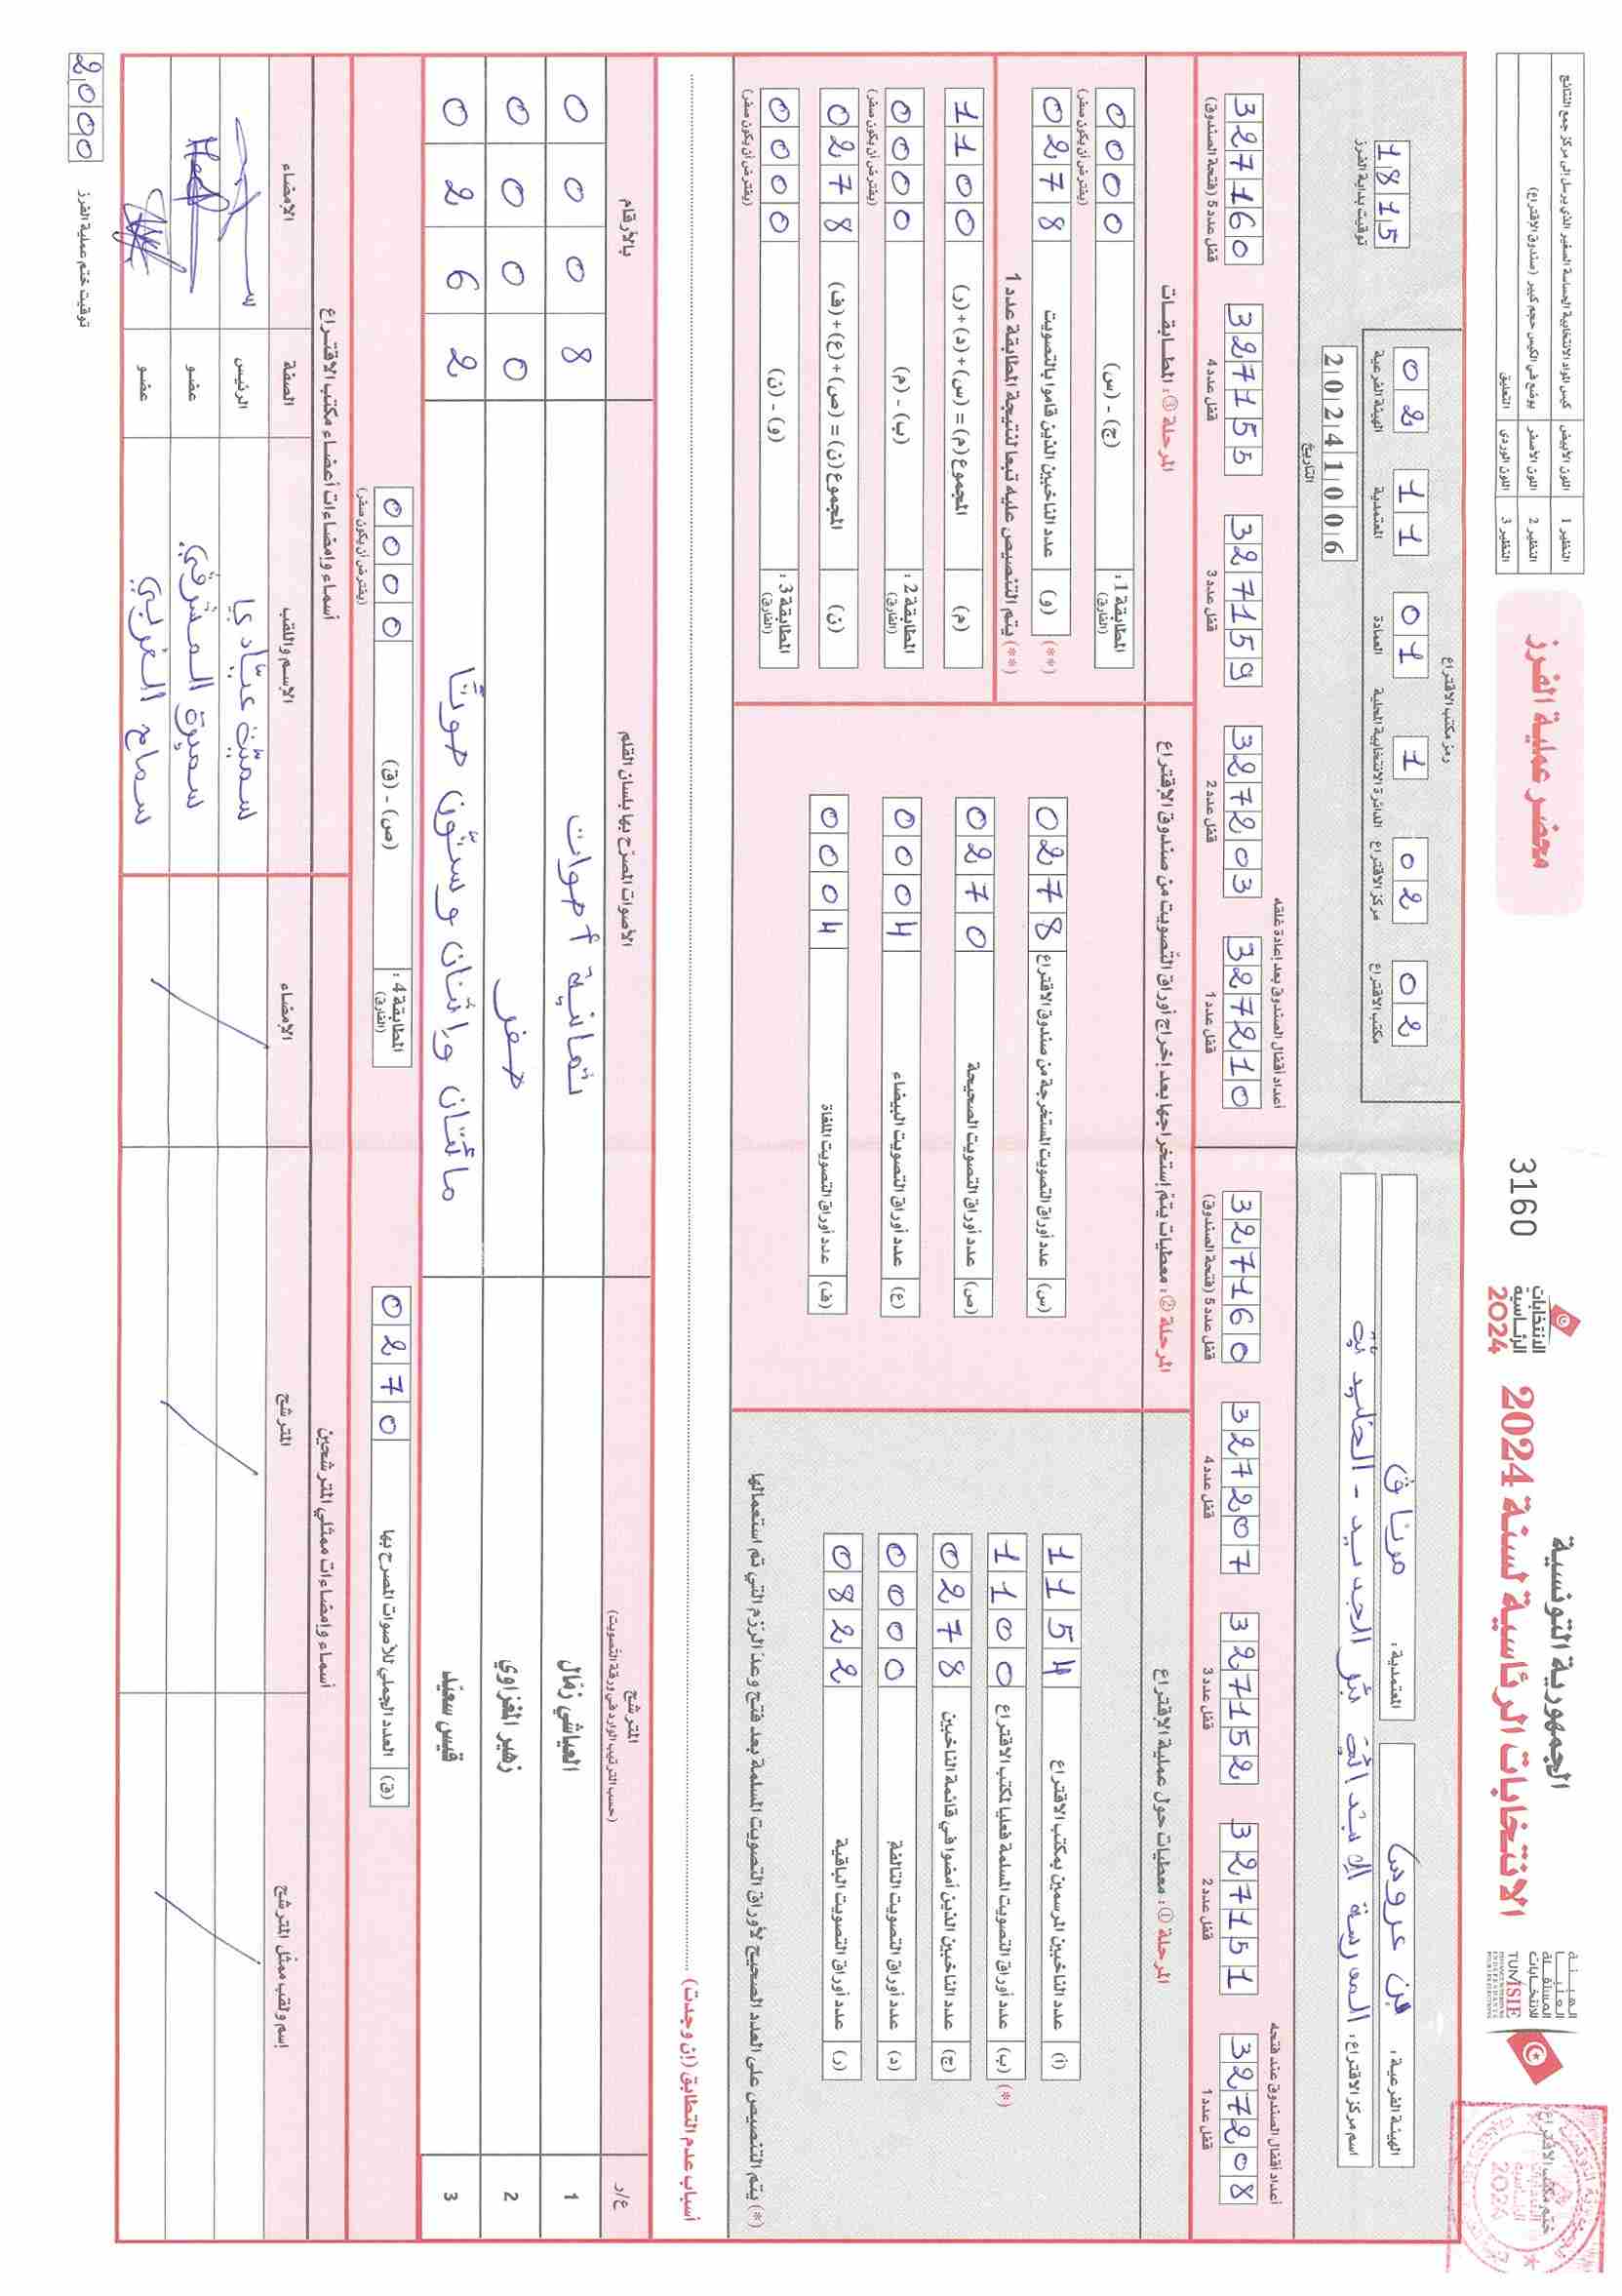 الجمهورية التونسية
الانتخابات الرئاسية لسنة 2024
الانتخابات الرئاسية 2024
3160
محضر عملية الفرز
الهيئة العليا المستقلة للانتخابات
TUNISIE
ختم مكتب الاقتراع
النظير 1 اللون الأبيض كيس المواد الانتخابية الحساسة الصغير الذي يرسل إلى مركز جمع النتائج
النظير 2 اللون الأصفر يوضع في الكيس حجم كبير (صندوق الاقتراع)
النظير 3 اللون الوردي التعليق
الهيئة الفرعية: بن عروس
المعتمدية: مرناق
اسم مركز الاقتراع: المدرسة الابتدائية بئر الجديد - الخليدية
رمز مكتب الاقتراع
02 11 01 1 02 02
الهيئة الفرعية المعتمدية العمادة الدائرة الانتخابية المحلية مركز الاقتراع مكتب الاقتراع
20241006
التاريخ
1815
توقيت بداية الفرز
أعداد أقفال الصندوق عند فتحه
327208 قفل عدد 1
327151 قفل عدد 2
327152 قفل عدد 3
327207 قفل عدد 4
327160 قفل عدد 5 (فتحة الصندوق)
أعداد أقفال الصندوق بعد إعادة غلقه
327210 قفل عدد 1
327203 قفل عدد 2
327159 قفل عدد 3
327155 قفل عدد 4
327160 قفل عدد 5 (فتحة الصندوق)
المرحلة ①: معطيات حول عملية الاقتراع
(أ) عدد الناخبين المرسمين بمكتب الاقتراع 1154
(*) (ب) عدد أوراق التصويت المسلمة فعليا لمكتب الاقتراع 1100
(ج) عدد الناخبين الذين أمضوا في قائمة الناخبين 0278
(د) عدد أوراق التصويت التالفة 0000
(ر) عدد أوراق التصويت الباقية 0822
(*) يتم التنصيص على العدد الصحيح لأوراق التصويت المسلمة بعد فتح وعد الرزم التي تم استعمالها
المرحلة ②: معطيات يتم إستخراجها بعد إخراج أوراق التصويت من صندوق الاقتراع
(س) عدد أوراق التصويت المستخرجة من صندوق الاقتراع 0278
(ص) عدد أوراق التصويت الصحيحة 0270
(ع) عدد أوراق التصويت البيضاء 0004
(ف) عدد أوراق التصويت الملغاة 0004
المرحلة ③: المطابقات
المطابقة 1: (الفارق) (ج) - (س) 0000
(يفترض أن يكون صفر)
(**) (و) عدد الناخبين الذين قاموا بالتصويت 0278
(**) يتم التنصيص عليه تبعا لنتيجة المطابقة عدد 1
(م) المجموع (م) = (س) + (د) + (ر) 1100
المطابقة 2: (الفارق) (ب) - (م) 0000
(يفترض أن يكون صفر)
(ن) المجموع (ن) = (ص) + (ع) + (ف) 0278
المطابقة 3: (الفارق) (و) - (ن) 0000
(يفترض أن يكون صفر)
أسباب عدم التطابق (إن وجدت)
ع/ر المترشح (حسب الترتيب الوارد في ورقة التصويت) الأصوات المصرح بها بلسان القلم بالأرقام
1 العياشي زمال ثمانية أصوات 0008
2 زهير المغزاوي صفر 0000
3 قيس سعيد مائتان وإثنان وستون صوتا 0262
(ق) العدد الجملي للأصوات المصرح بها 0270
المطابقة 4: (الفارق) (ص) - (ق) 0000
(يفترض أن يكون صفر)
أسماء وإمضاءات ممثلي المترشحين
إسم ولقب ممثل المترشح المترشح الإمضاء
أسماء وإمضاءات أعضاء مكتب الاقتراع
الإسم واللقب الصفة الإمضاء
سميّة عيّادي الرئيس
سميرة المشرقي عضو
سماح الغربي عضو
توقيت ختم عملية الفرز 2000